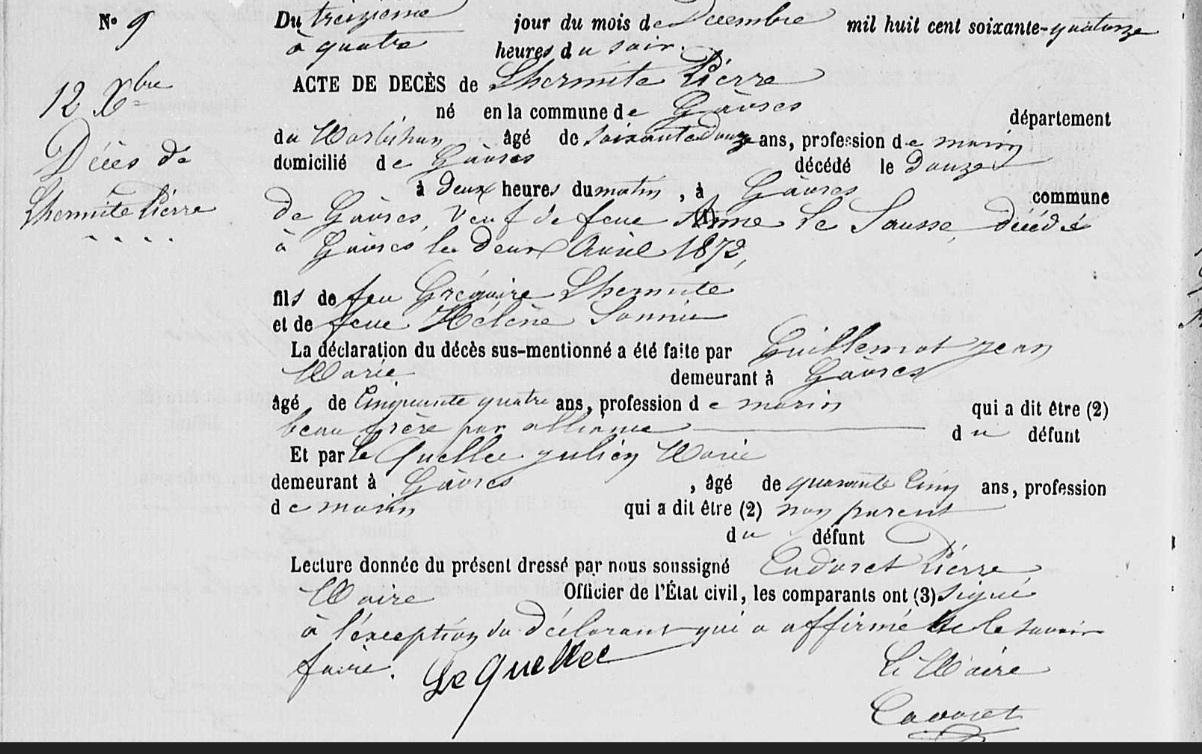 N° 9
Du treizieme jour du mois de Decembre mil huit cent soixante-quatorze
à quatre heures du soir.
12 Xbre
Décès de
Lhermite Pierre
ACTE DE DECÈS de Lhermite Pierre
né en la commune de Gâvres département
du Morbihan âgé de soixante douze ans, profession de marin
domicilié de Gâvres décédé le douze
à deux heures du matin, à Gâvres commune
de Gâvres, Veuf de feue Anne Le Sausse, décédée
à Gâvres le deux Avril 1872,
fils de feu Grégoire Lhermite
et de feue Hélène Sonnic
La déclaration du décès sus-mentionné a été faite par Guillemot Jean
Marie demeurant à Gâvres
âgé de Cinquante quatre ans, profession de marin qui a dit être (2)
beau frère par alliance du défunt
Et par Le Quellec Julien Marie
demeurant à Gâvres, âgé de quarante Cinq ans, profession
de marin qui a dit être (2) non parent
du défunt
Lecture donnée du présent dressé par nous soussigné Cadoret Pierre
Maire Officier de l'État civil, les comparants ont (3) signé
à l'exception du déclarant qui a affirmé ne le savoir
faire. Le Quellec Le Maire
Cadoret